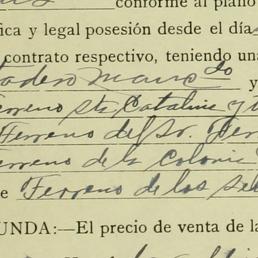 conforme al plano
ica y legal posesión desde el día
contrato respectivo, teniendo una
y
Terreno Sta Catalina y
Terreno del Sr.
Terreno de la Colonia
e Terreno de los
UNDA:—El precio de venta de la